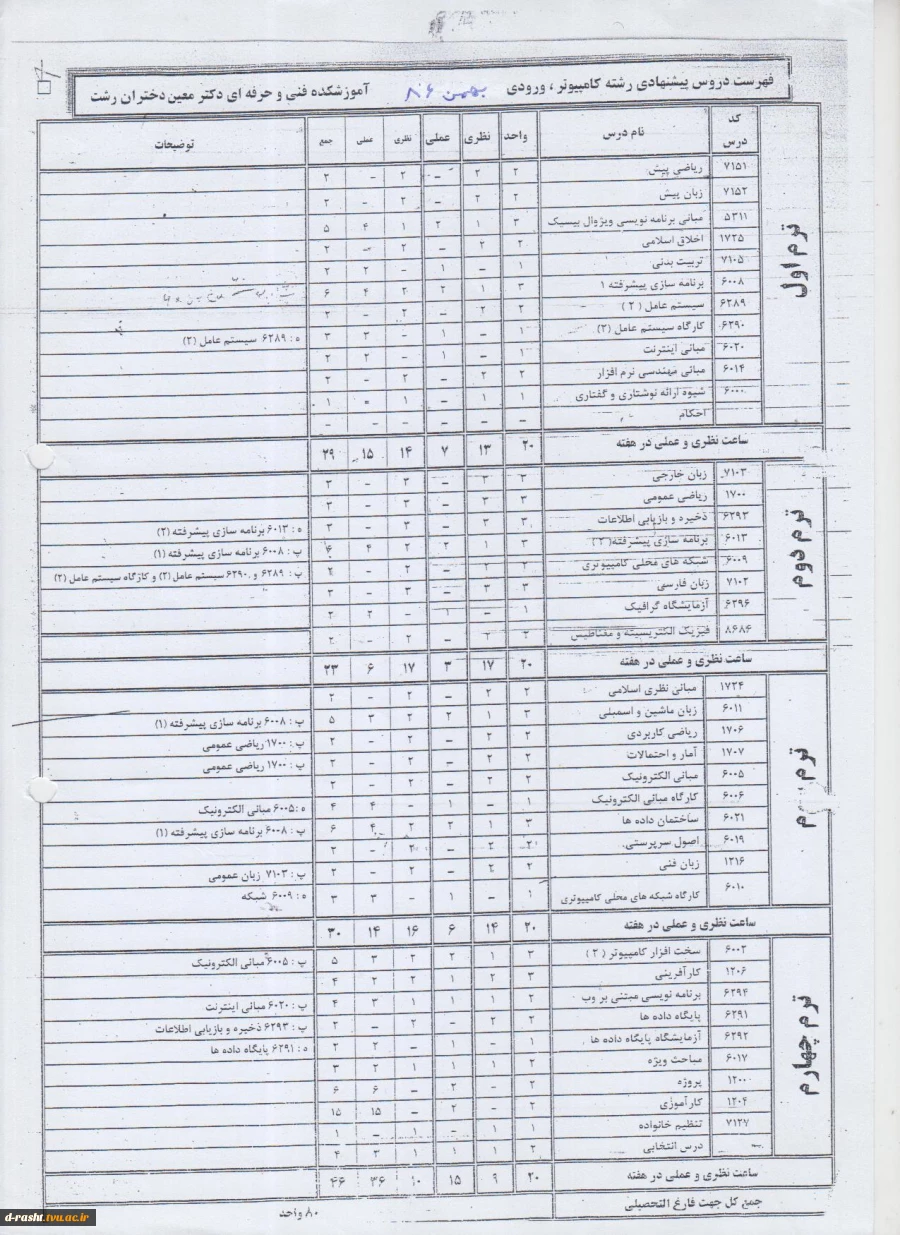 فهرست دروس پیشنهادی رشته کامپیوتر ، ورودی بهمن ۸۰۶ آموزشکده فنی و حرفه ای دکتر معین دختران رشت
کد درس نام درس واحد نظری عملی نظری عملی جمع توضیحات
ترم اول
۷۱۵۱ ریاضی پیش ۲ ۲ – ۲ – ۲
۷۱۵۲ زبان پیش ۲ ۲ – ۲ – ۲
۵۳۱۱ مبانی برنامه نویسی ویژوال بیسیک ۳ ۱ ۲ ۱ ۴ ۵
۱۷۲۵ اخلاق اسلامی ۲ ۲ – ۲ – ۲
۷۱۰۵ تربیت بدنی ۱ – ۱ – ۲ ۲
۶۰۰۸ برنامه سازی پیشرفته ۱ ۳ ۱ ۲ ۲ ۴ ۶
۶۲۸۹ سیستم عامل (۲) ۲ ۲ – ۲ – ۲
۶۲۹۰ کارگاه سیستم عامل (۲) ۱ – ۱ – ۳ ۳ ه : ۶۲۸۹ سیستم عامل (۲)
۶۰۲۰ مبانی اینترنت ۱ – ۱ – ۲ ۲
۶۰۱۴ مبانی مهندسی نرم افزار ۲ ۲ – ۲ – ۲
۶۰۰۰ شیوه ارائه نوشتاری و گفتاری ۱ ۱ – ۱ ۰ ۱
احکام – – – – – –
ساعت نظری و عملی در هفته ۲۰ ۱۳ ۷ ۱۴ ۱۵ ۲۹
ترم دوم
۷۱۰۳ زبان خارجی ۳ ۳ – ۳ – ۳
۱۷۰۰ ریاضی عمومی ۳ ۳ – ۳ – ۳
۶۲۹۳ ذخیره و بازیابی اطلاعات ۳ ۳ – ۳ – ۳ ه : ۶۰۱۳ برنامه سازی پیشرفته (۲)
۶۰۱۳ برنامه سازی پیشرفته( ۲ ) ۳ ۱ ۲ ۲ ۴ ۶ پ : ۶۰۰۸ برنامه سازی پیشرفته (۱)
۶۰۰۹ شبکه های محلی کامپیوتری ۲ ۲ – ۲ – ۲ پ : ۶۲۸۹ و ۶۲۹۰ سیستم عامل (۲) و کارگاه سیستم عامل (۲)
۷۱۰۲ زبان فارسی ۳ ۳ – ۳ – ۳
۶۲۹۶ آزمایشگاه گرافیک ۱ – ۱ – ۲ ۲
۸۶۸۶ فیزیک الکتریسیته و مغناطیس ۲ ۲ – ۲ – ۲
ساعت نظری و عملی در هفته ۲۰ ۱۷ ۳ ۱۷ ۶ ۲۳
ترم
۱۷۲۴ مبانی نظری اسلامی ۲ ۲ – ۲ – ۲
۶۰۱۱ زبان ماشین و اسمبلی ۳ ۱ ۲ ۲ ۳ ۵ پ : ۶۰۰۸ برنامه سازی پیشرفته (۱)
۱۷۰۶ ریاضی کاربردی ۲ ۲ – ۲ – ۲ پ : ۱۷۰۰ ریاضی عمومی
۱۷۰۷ آمار و احتمالات ۲ ۲ – ۲ – ۲ پ : ۱۷۰۰ ریاضی عمومی
۶۰۰۵ مبانی الکترونیک ۲ ۲ – ۲ – ۲
۶۰۰۶ کارگاه مبانی الکترونیک ۱ – ۱ – ۴ ۴ ه : ۶۰۰۵ مبانی الکترونیک
۶۰۲۱ ساختمان داده ها ۳ ۱ ۲ ۲ ۴ ۶ پ : ۶۰۰۸ برنامه سازی پیشرفته (۱)
۶۰۱۹ اصول سرپرستی ۲ ۲ – ۲ – ۲
۱۲۱۶ زبان فنی ۲ ۲ – ۲ – ۲ پ : ۷۱۰۳ زبان عمومی
۶۰۱۰ کارگاه شبکه های محلی کامپیوتری ۱ – ۱ – ۳ ۳ ه : ۶۰۰۹ شبکه
ساعت نظری و عملی در هفته ۲۰ ۱۴ ۶ ۱۶ ۱۴ ۳۰
ترم چهارم
۶۰۰۲ سخت افزار کامپیوتر ( ۲ ) ۳ ۱ ۲ ۲ ۳ ۵ پ : ۶۰۰۵ مبانی الکترونیک
۱۲۰۶ کارآفرینی ۳ ۲ ۱ ۲ ۲ ۴
۶۲۹۴ برنامه نویسی مبتنی بر وب ۲ ۱ ۱ ۱ ۳ ۴ پ : ۶۰۲۰ مبانی اینترنت
۶۲۹۱ پایگاه داده ها ۲ ۲ – ۲ – ۲ پ : ۶۲۹۳ ذخیره و بازیابی اطلاعات
۶۲۹۲ آزمایشگاه پایگاه داده ها ۱ – ۱ – ۲ ۲ ه : ۶۲۹۱ پایگاه داده ها
۶۰۱۷ مباحث ویژه ۲ ۱ ۱ ۱ ۲ ۳
۱۲۰۰ پروژه ۲ – ۲ – ۶ ۶
۱۲۰۴ کارآموزی ۲ – ۲ – ۱۵ ۱۵
۷۱۲۷ تنظیم خانواده ۱ ۱ – ۱ – ۱
درس انتخابی ۲ ۱ ۱ ۱ ۳ ۴
ساعت نظری و عملی در هفته ۲۰ ۹ ۱۵ ۱۰ ۳۶ ۴۶
جمع کل جهت فارغ التحصیلی ۸۰ واحد
d-rasht.tvu.ac.ir